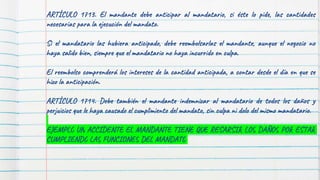 ARTÍCULO 1713. El mandante debe anticipar al mandatario, si éste lo pide, las cantidades
necesarias para la ejecución del mandato.
Si el mandatario las hubiera anticipado, debe reembolsarlas el mandante, aunque el negocio no
haya salido bien, siempre que el mandatario no haya incurrido en culpa.
El reembolso comprenderá los intereses de la cantidad anticipada, a contar desde el día en que se
hizo la anticipación.
ARTÍCULO 1714. Debe también el mandante indemnizar al mandatario de todos los daños y
perjuicios que le haya causado el cumplimiento del mandato, sin culpa ni dolo del mismo mandatario.
EJEMPLO: UN ACCIDENTE EL MANDANTE TIENE QUE RESARSIR LOS DAÑOS POR ESTAR
CUMPLIENDO LAS FUNCIONES DEL MANDATO